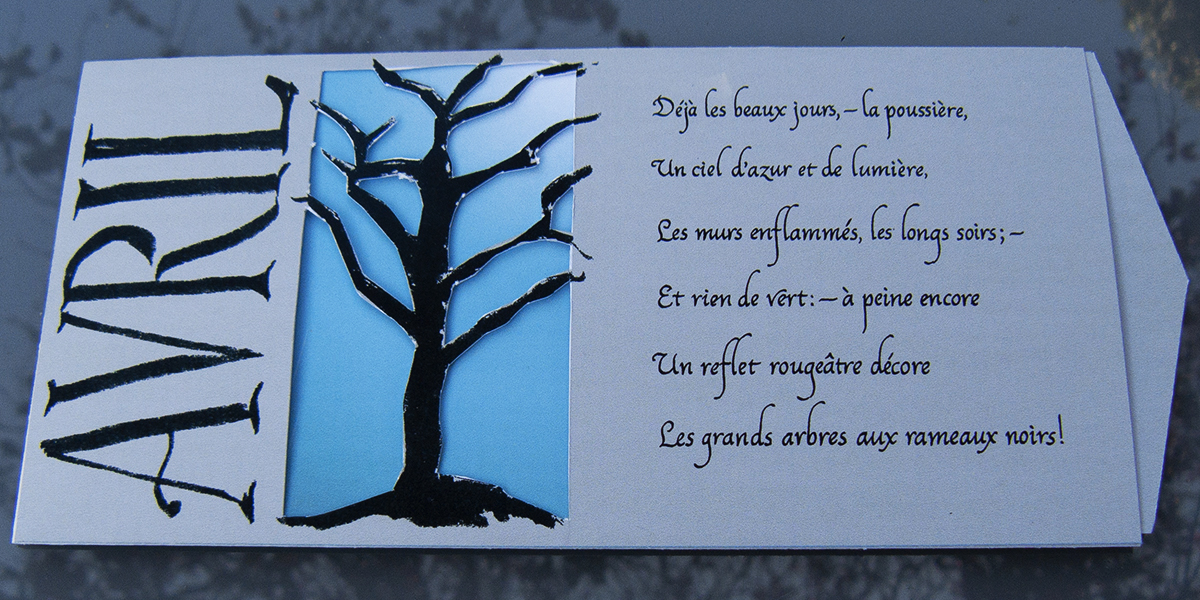 AVRIL
Déjà les beaux jours, – la poussière,
Un ciel d'azur et de lumière,
Les murs enflammés, les longs soirs ; –
Et rien de vert : – à peine encore
Un reflet rougeâtre décore
Les grands arbres aux rameaux noirs !